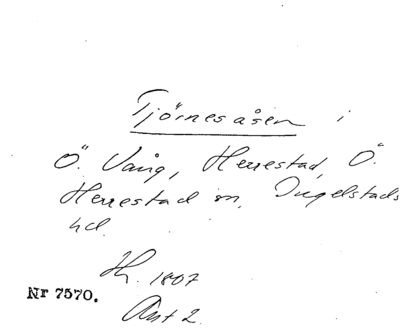 Tjörnesåsen i
Ö. Vång, Herrestad, Ö.
Herrestad m, Ingelstads
hd.
Hr. 1807
Nr 7570.
Ant 2.